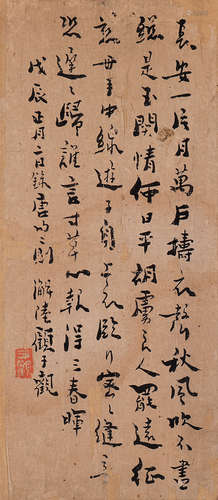 長安一片月萬戶擣衣聲秋風吹不盡
總是玉關情何日平胡虜良人罷遠征
慈母手中線遊子身上衣臨行密密縫意
恐遲遲歸誰言寸草心報得三春暉
戊辰正月二日錄唐句 陸顧子觀